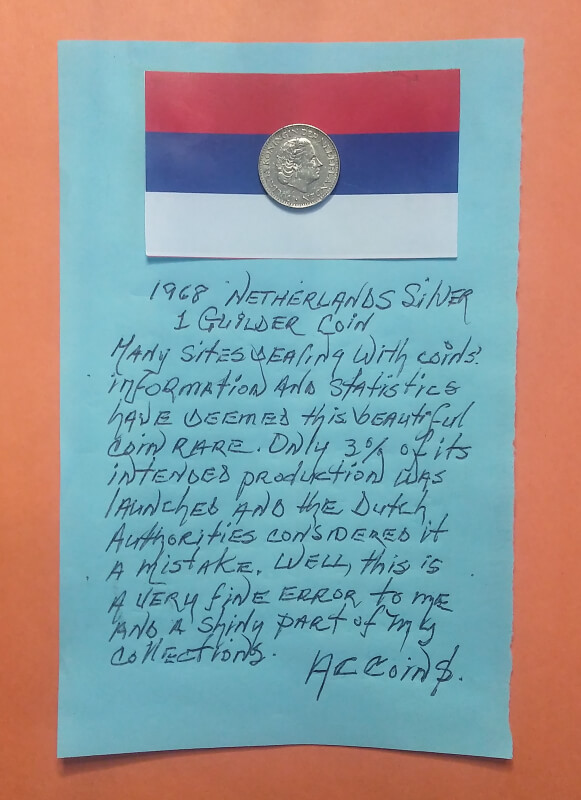 JULIANA KONINGIN DER NEDERLANDEN
1968 NETHERLANDS SilVER
1 GUilDER COIN
MANY SitES DEALiNG With COiNS'
iNFORMATiON AND StAtiSticS
hAVE DEEMED this bEAUtiful
COiN RARE. ONly 3% of its
iNtENDED pRODUCtiON WAS
lAUNchED AND thE DUtch
AUthORitiES CONSiDERED it
A MiStAKE. WELL, this is
A VERY fiNE ERROR to ME
AND A ShiNY pARt of My
COllECtiONS.
AC COiN$.